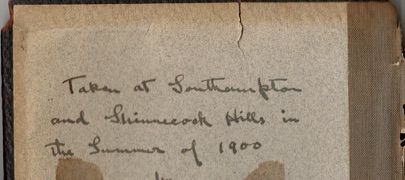 Taken at Southampton
and Shinnecock Hills in
the Summer of 1900